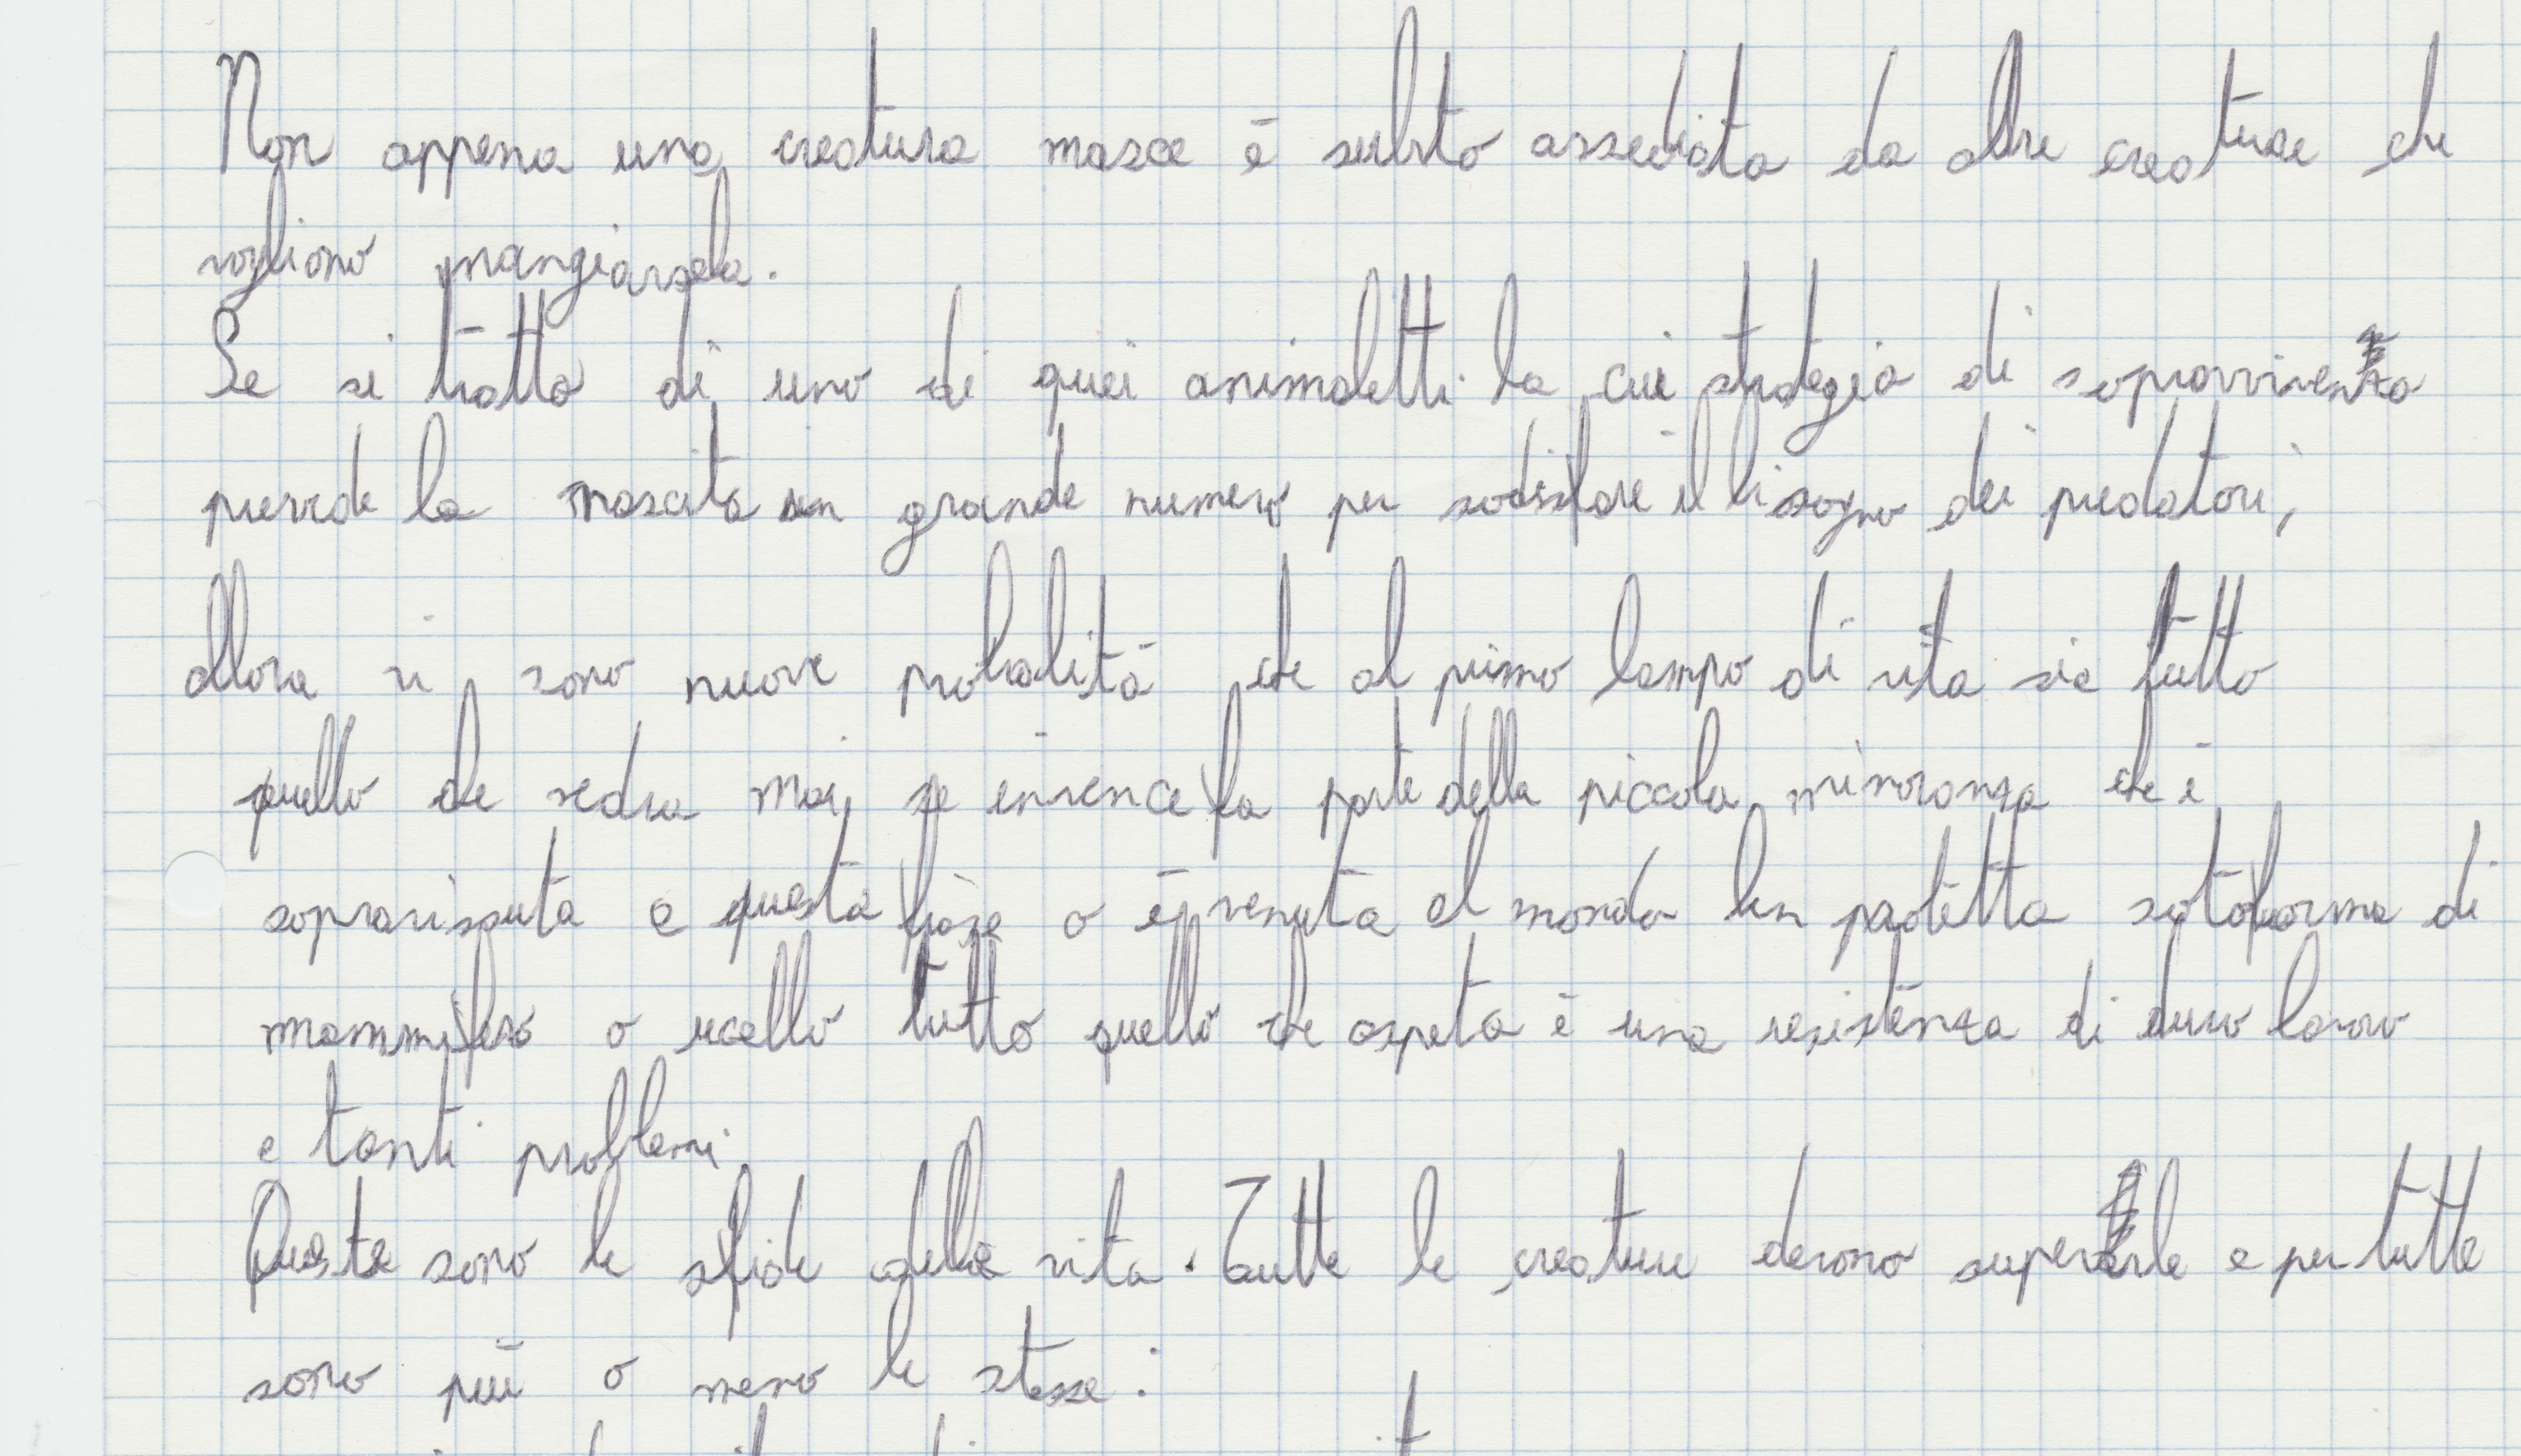 Non appena una creatura nasce è subito assediata da altre creature che
vogliono mangiarsela.
Se si tratta di uno di quei animaletti la cui strategia di sopravvivenza
prevede la nascita in grande numero per sodisfare il bisogno dei predatori,
allora vi sono nuove probalità che al primo lampo di vita sia tutto
quello che vedra mai, se invence fa parte della piccola minoranza che è
sopravissuta a questa fase o è venuta al mondo ben protetta sotoforma di
mammifero o ucello tutto quello che aspeta è una resistenza di duro lavoro
e tanti problemi
Queste sono le sfide della vita. Tutte le creature devono superarle e per tutte
sono più o meno le stesse: